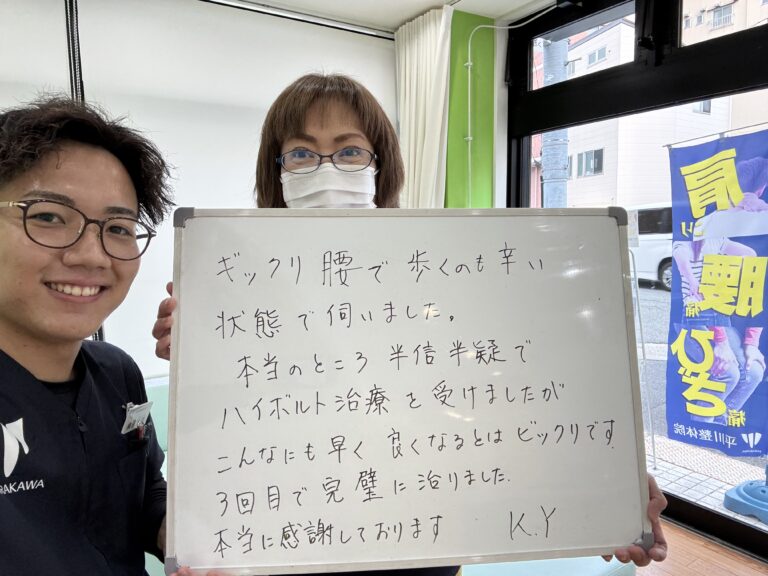 ギックリ腰で歩くのも辛い
状態で伺いました。
本当のところ半信半疑で
ハイボルト治療を受けましたが
こんなにも早く良くなるとはビックリです
3回目で完璧に治りました.
本当に感謝しております K.Y
RAKAWA
肩
腰
痛
ひざ
痛
平川整体院